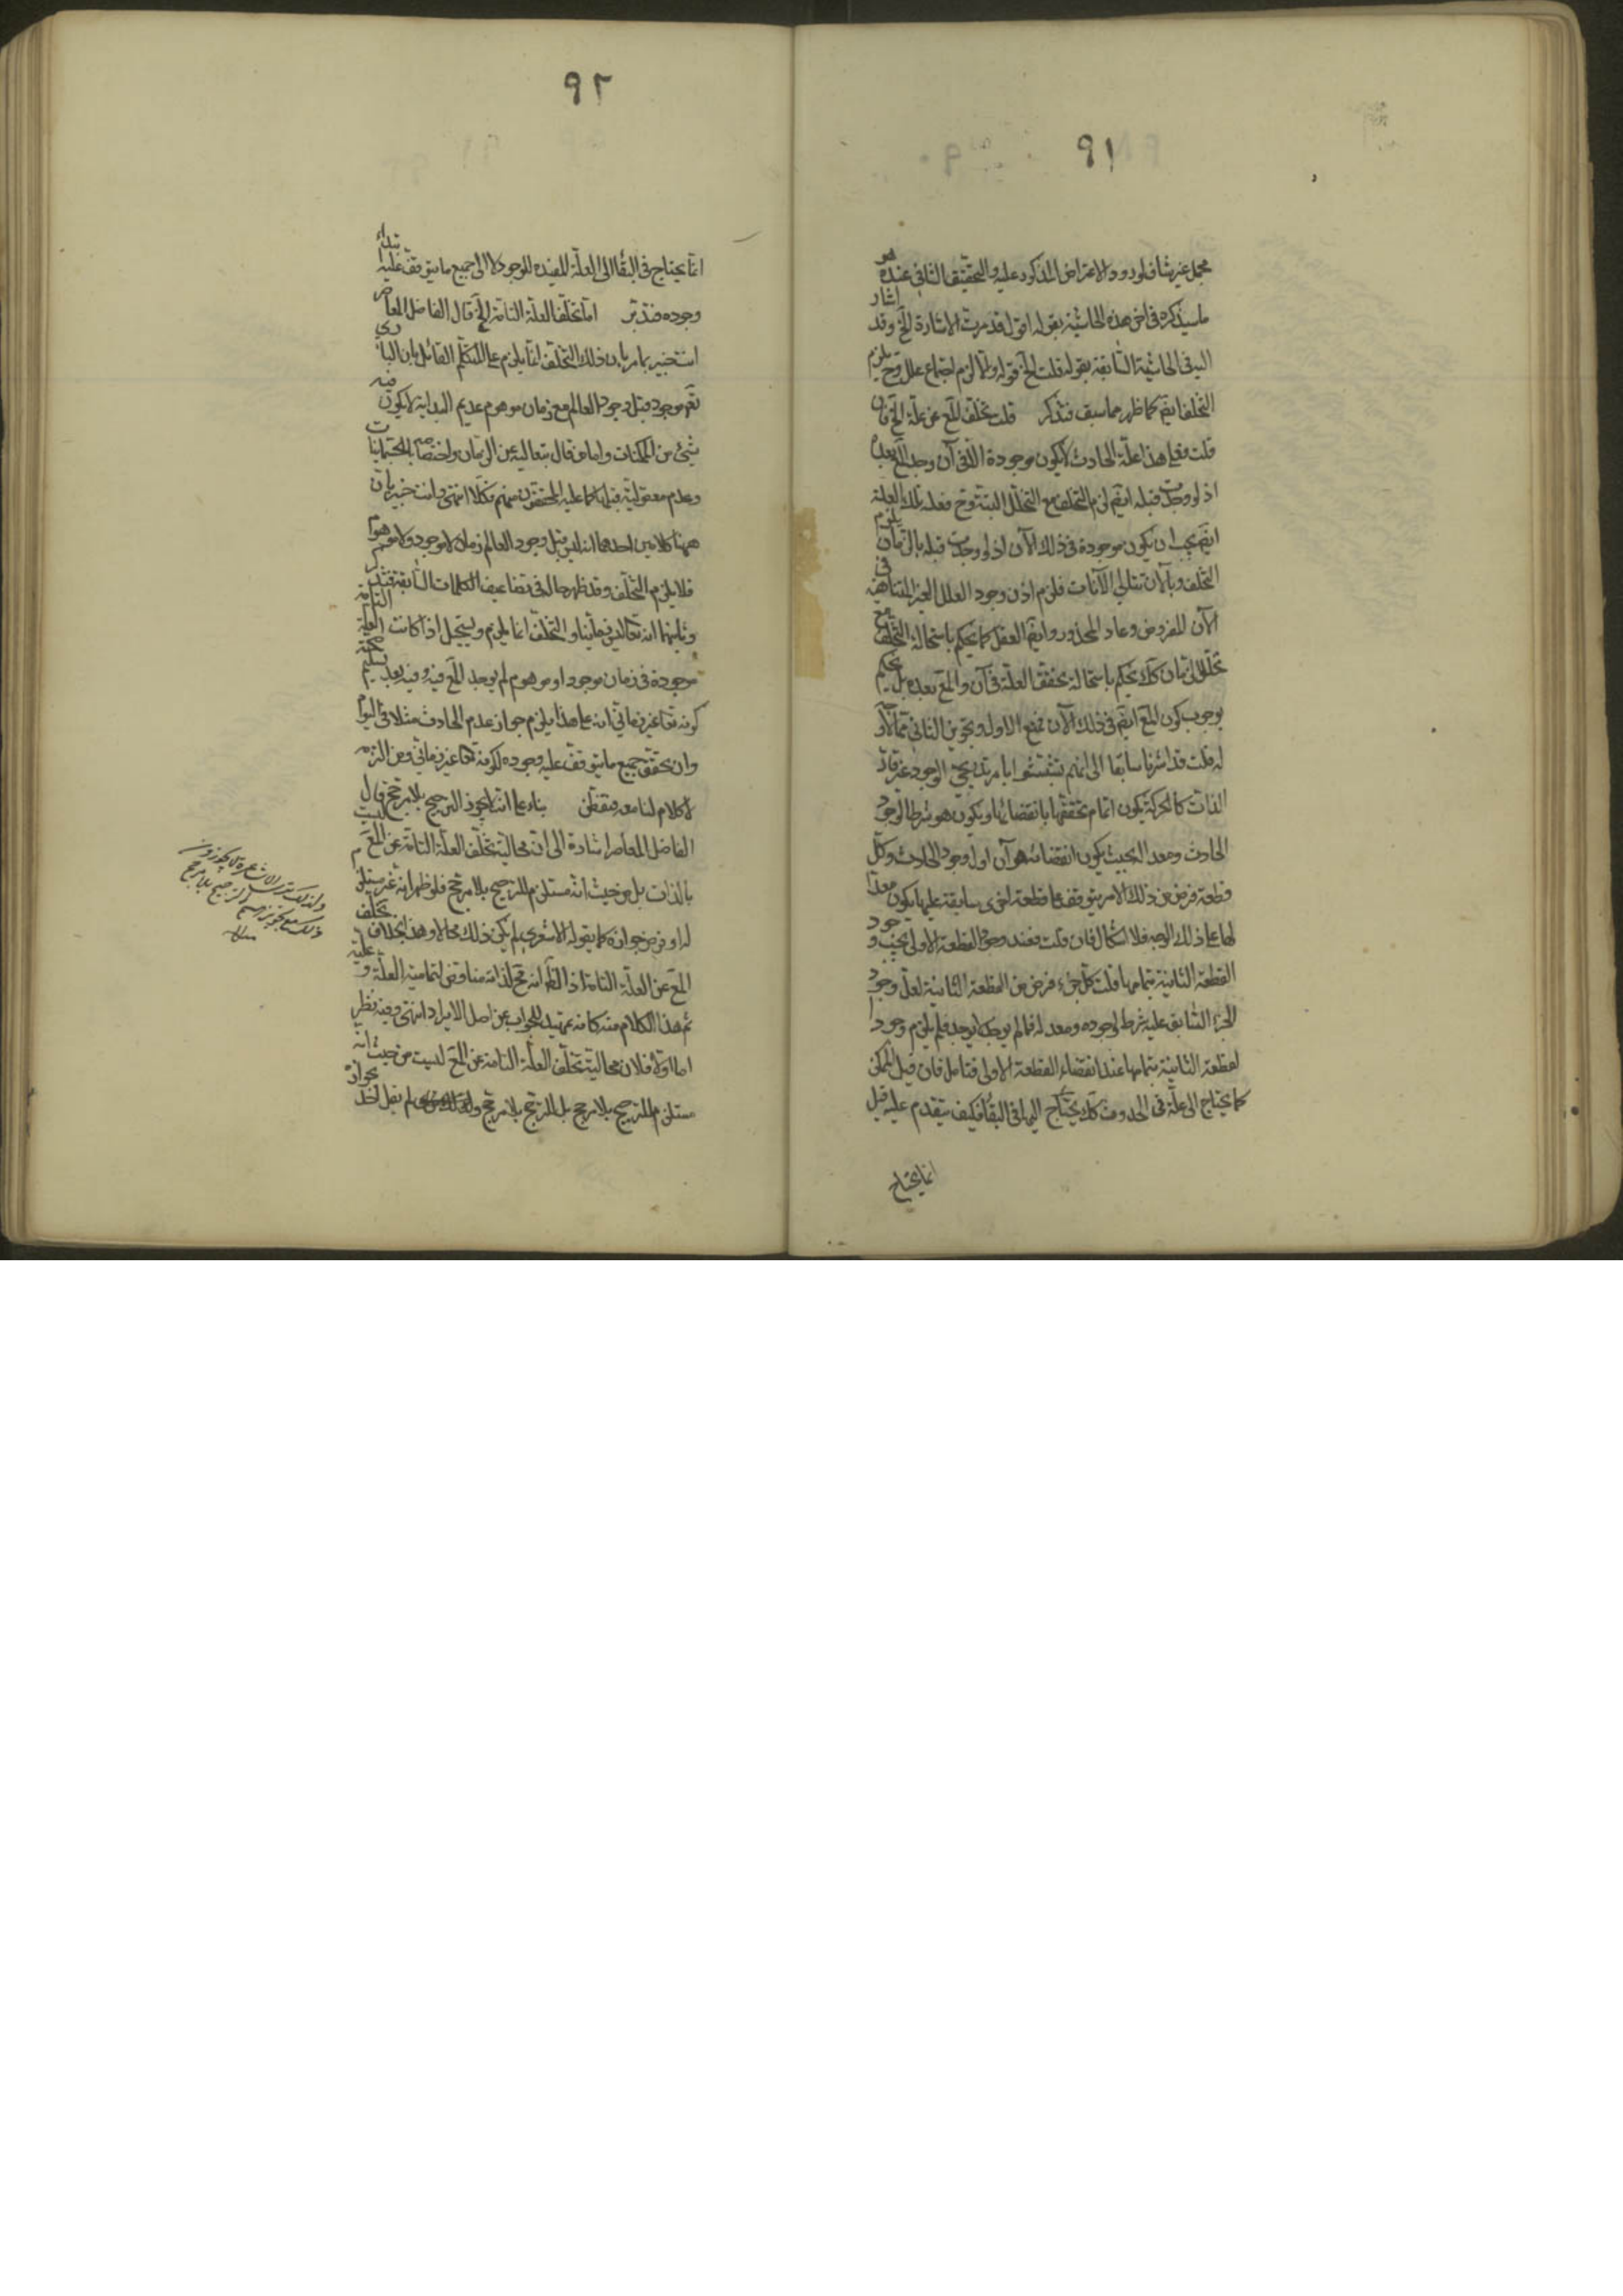 ٩١
مجمل غير شاف لورود الاعتراض المذكور عليه والتحقيق الشافى عنده هو
ما سيذكره فى اخر هذه الحاشية بقوله اقول قد مرت الاشارة الخ وقد اشار
اليه فى الحاشية السابقة بقوله قلت الخ قوله ولما لزم اجتماع علل وح يلزم
التخلف ايضم كما ظهر مما سبق فتذكر قلت تخلف المع عن علة الخ فان
قلت فعلى هذا علة الحادث لا يكون موجودة الا فى آن وجد المع بعده
اذ لو وجدت قبله ايضم لزم التخلف مع التخلل البتة وح فعلة تلك العلة
ايضم يجب ان يكون موجودة فى ذلك الآن اذ لو وجدت قبله بالزمان يلزم
التخلف وبالآن تتالى الآنات فلزم اذن وجود العلل الغير المتناهية فى
الآن المفروض وعاد المحذور وايضم العقل كما يحكم باستحالة التخلف مع
تخلل الزمان كك يحكم باستحالة تحقق العلة فى آن والمع بعده بل يحكم
بوجوب كون المع ايضم فى ذلك الآن فمنع الاول وتجويز الثانى مما لا
له قلت قد اشرنا سابقا الى انهم تشبثوا بامر تدريجى الوجود غير قار
الذات كالحركة يكون اتمام تحققها بانقضائها ويكون هو شرطا لوجود
الحادث ومعدا بحيث يكون انقضائه هو آن اول وجود الحادث وكل
قطعة فرض من ذلك الامر يتوقف على قطعة اخرى سابقة عليها يكون معدا
لها على ذلك الوجه فلا اشكال فان قلت فعند وجود القطعة الاولى يجب وجود
القطعة الثانية بتمامها قلت كل جزء فرض من القطعة الثانية لعل وجود
الجزء السابق عليه شرط لوجوده ومعد له فما لم يوجد لم يوجد فلم يلزم وجود
القطعة الثانية بتمامها عند انقضاء القطعة الاولى فتامل فان قيل الممكن
كما يحتاج الى علة فى الحدوث كك يحتاج اليها فى البقاء فكيف يتقدم عليه قيل
انما يحتاج
٩٢
انما يحتاج فى البقاء الى العلة المفيدة للوجود لا الى جميع ما يتوقف عليه ابتداء
وجوده فتدبر اما تخلف العلة التامة الخ قال الفاضل المعاصر
انت خبير بما مر بان ذلك التخلف انما يلزم على المتكلم القائل بان البارى
تعم موجود قبل وجود العالم مع زمان موهوم عديم البداية لا يكون فيه
شئ من الممكنات واما من قال بتعاليه عن الزمان واختصاصه بالمتغيرات
وعدم معقولية قبلها كما عليه المحققون منهم فكلا انتهى وانت خبير بان
ههنا كلامين احدهما انه ليس قبل وجود العالم زمان لا موجود ولا موهوم
فلا يلزم التخلف وقد ظهر حاله فى تضاعيف الكلمات السابقة فتذكر
وثانيهما انه تعالى ليس زمانيا والتخلف انما يلزم ويستحيل اذا كانت العلة التامة
موجودة فى زمان موجود او موهوم لم يوجد المع فيه وفيه بعد تسليم صحة
كونه تعا غير زمانى انه على هذا يلزم جواز عدم الحادث مثلا فى اليوم
وان تحقق جميع ما يتوقف عليه وجوده لكونه تعا غير زمانى ومن التزمه
لا كلام لنا معه فتفطن بناء على انه لا يجوز الترجيح بلا مرجح قال
الفاضل المعاصر اشارة الى ان محالية تخلف العلة التامة عن المع ليست
بالذات بل من حيث انه مستلزم للترجيح بلا مرجح فلو ظهر انه غير مستلزم
له او فرض جوازه كما يقوله الاشعرى لم يكن ذلك محالا وهذا بخلاف تخلف
المع عن العلة التامة اذ الظ انه مح لذاته مناقض لتمامية العلة وعليته
ثم هذا الكلام منه كانه تمهيد للجواب عن اصل الايراد انتهى وفيه نظر
اما اولا فلان محالية تخلف العلة التامة عن المع ليست من حيث انه
مستلزم للترجيح بلا مرجح بل للترجح بلا مرجح ولم يقل احد بجوازه
ولذلك ترى الاشاعرة لا يجوزون
ذلك مع تجويزهم الترجيح بلا مرجح
منه